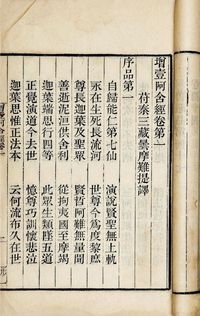 增壹阿含經卷第一
苻秦三藏曇摩難提譯
序品第一
自歸能仁第七仙　演說賢聖無上軌
永在生死長流河　世尊今為度黎庶
尊長迦葉及聖眾　賢哲阿難無量聞
善逝泥洹供舍利　從拘夷國至摩竭
迦葉端思行四等　此眾生類墜五道
正覺演道今去世　憶尊巧訓懷悲泣
迦葉思惟正法本　云何流布久在世